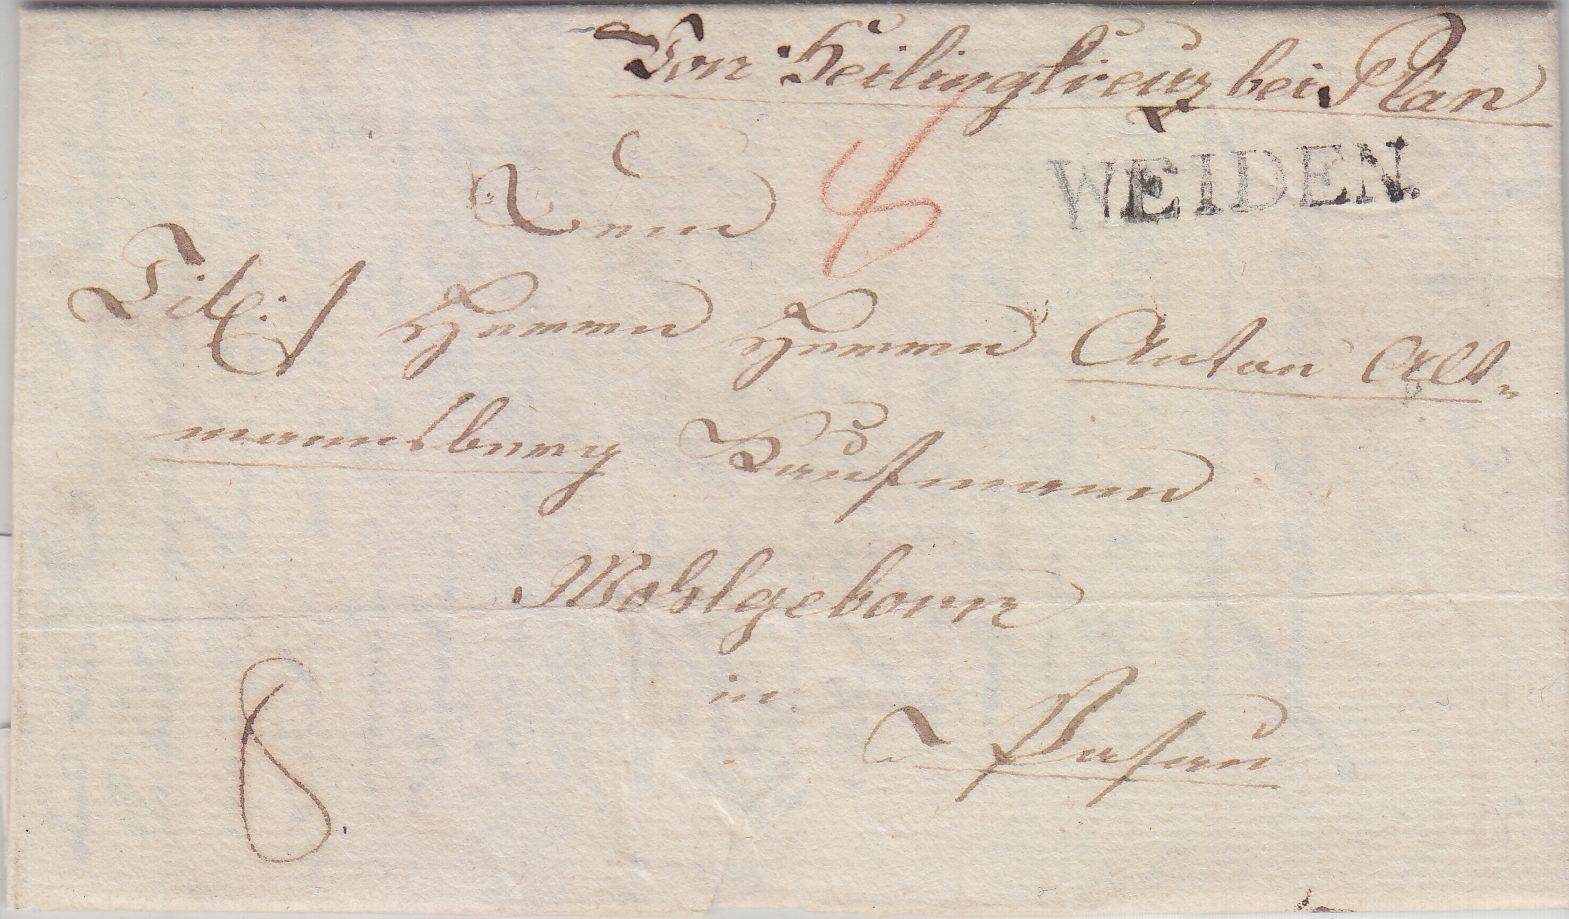 Von Heilingkreuz bei Plan
WEIDEN.
Dem
8
Titl: / Herrn Herrn Anton Alt-
mannsburg Kaufmann
Wohlgeborn
in
Pasau
8.